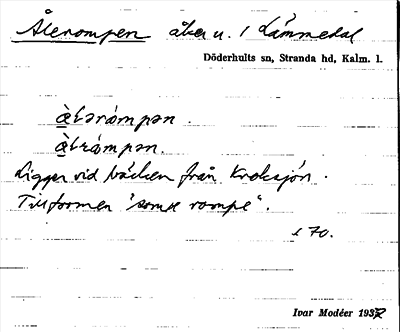 Ålerompen åker u. 1 Lämmedal
Döderhults sn, Stranda hd, Kalm. l.
Ligger vid bäcken från Kroksjön.
Till formen "som en rompe".
s 70.
Ivar Modéer 1937